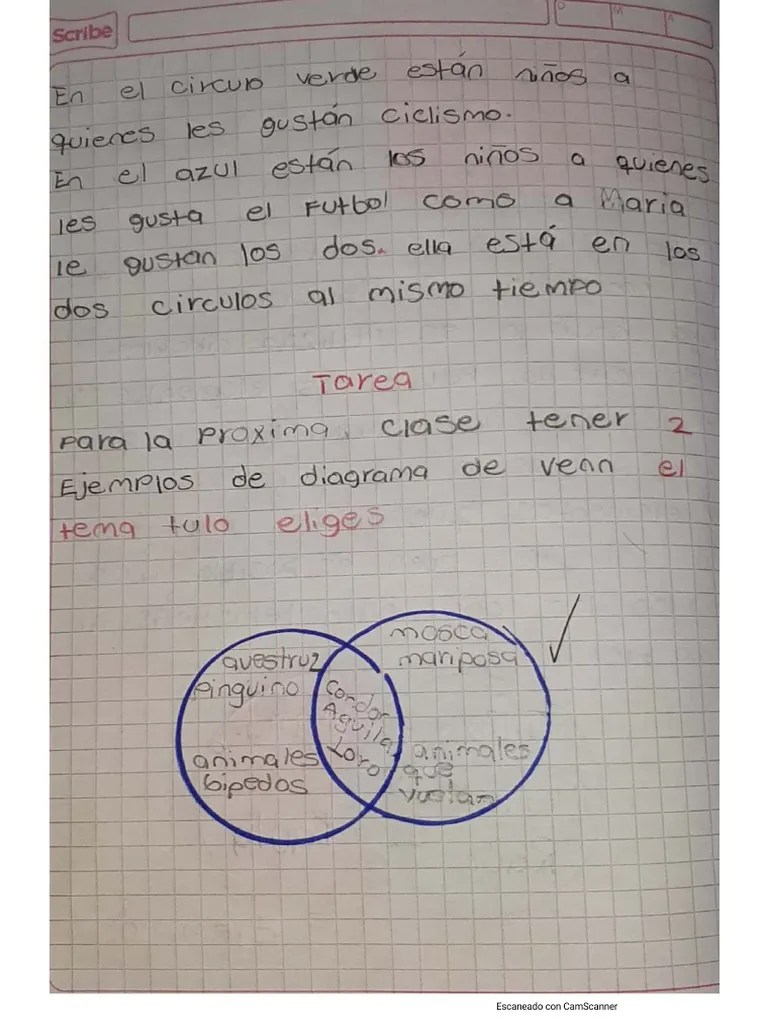 Scribe
D M A
En el circulo verde están niños a
quienes les gustán ciclismo.
En el azul están los niños a quienes
les gusta el Futbol como a Maria
le gustan los dos. ella está en los
dos circulos al mismo tiempo
Tarea
para la proxima, clase tener 2
Ejemplos de diagrama de venn el
tema tulo eliges
mosca
avestruz mariposa
pinguino Condor
Aguila
animales Loro animales
bipedos que
vuelan
Escaneado con CamScanner